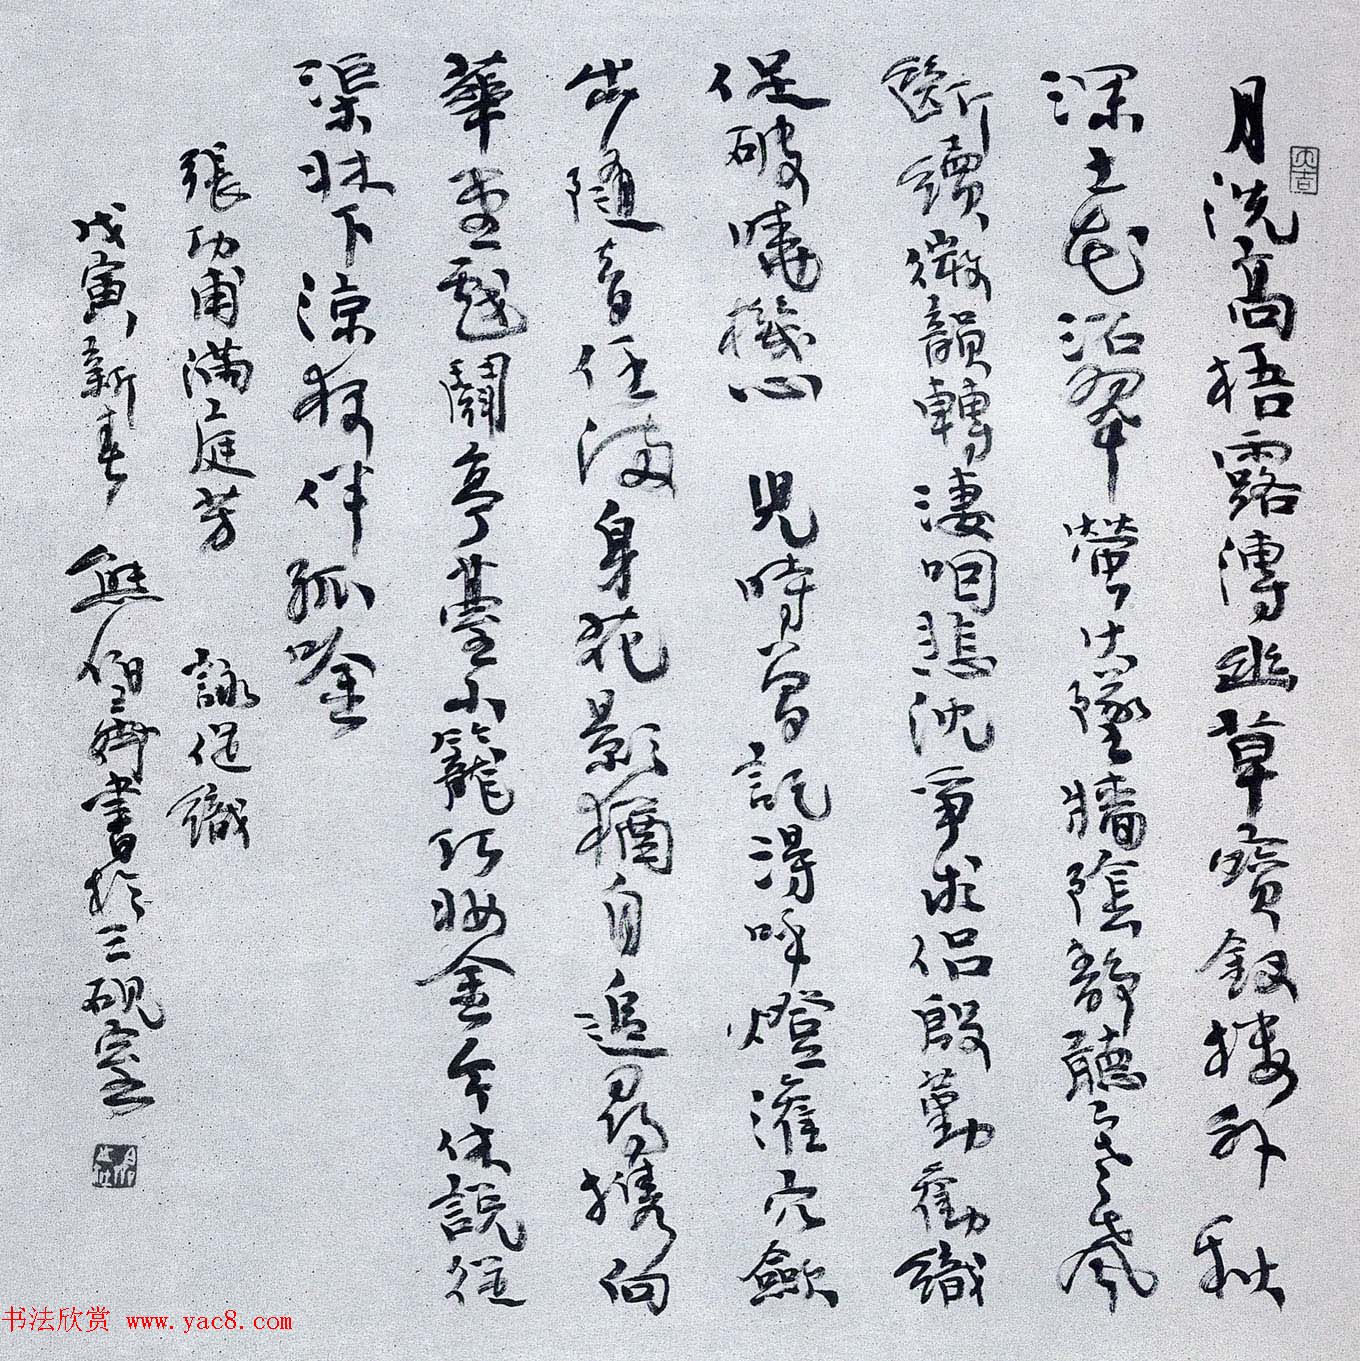 月洗高梧露漙幽草寶釵樓外秋
深土花沿翠螢火墜牆陰靜聽寒聲
斷續微韻轉淒咽悲沈爭求侶殷勤勸織
促破曉機心 兒時曾記得呼燈灌穴斂
步隨音任滿身花影猶自追尋攜向
華堂戲鬭亭臺小籠巧妝金今休說從
渠牀下涼夜伴孤唫
張功甫滿庭芳 詠促織
戊寅新春 熊伯齊書於三硯室
大吉
书法欣赏 www.yac8.com